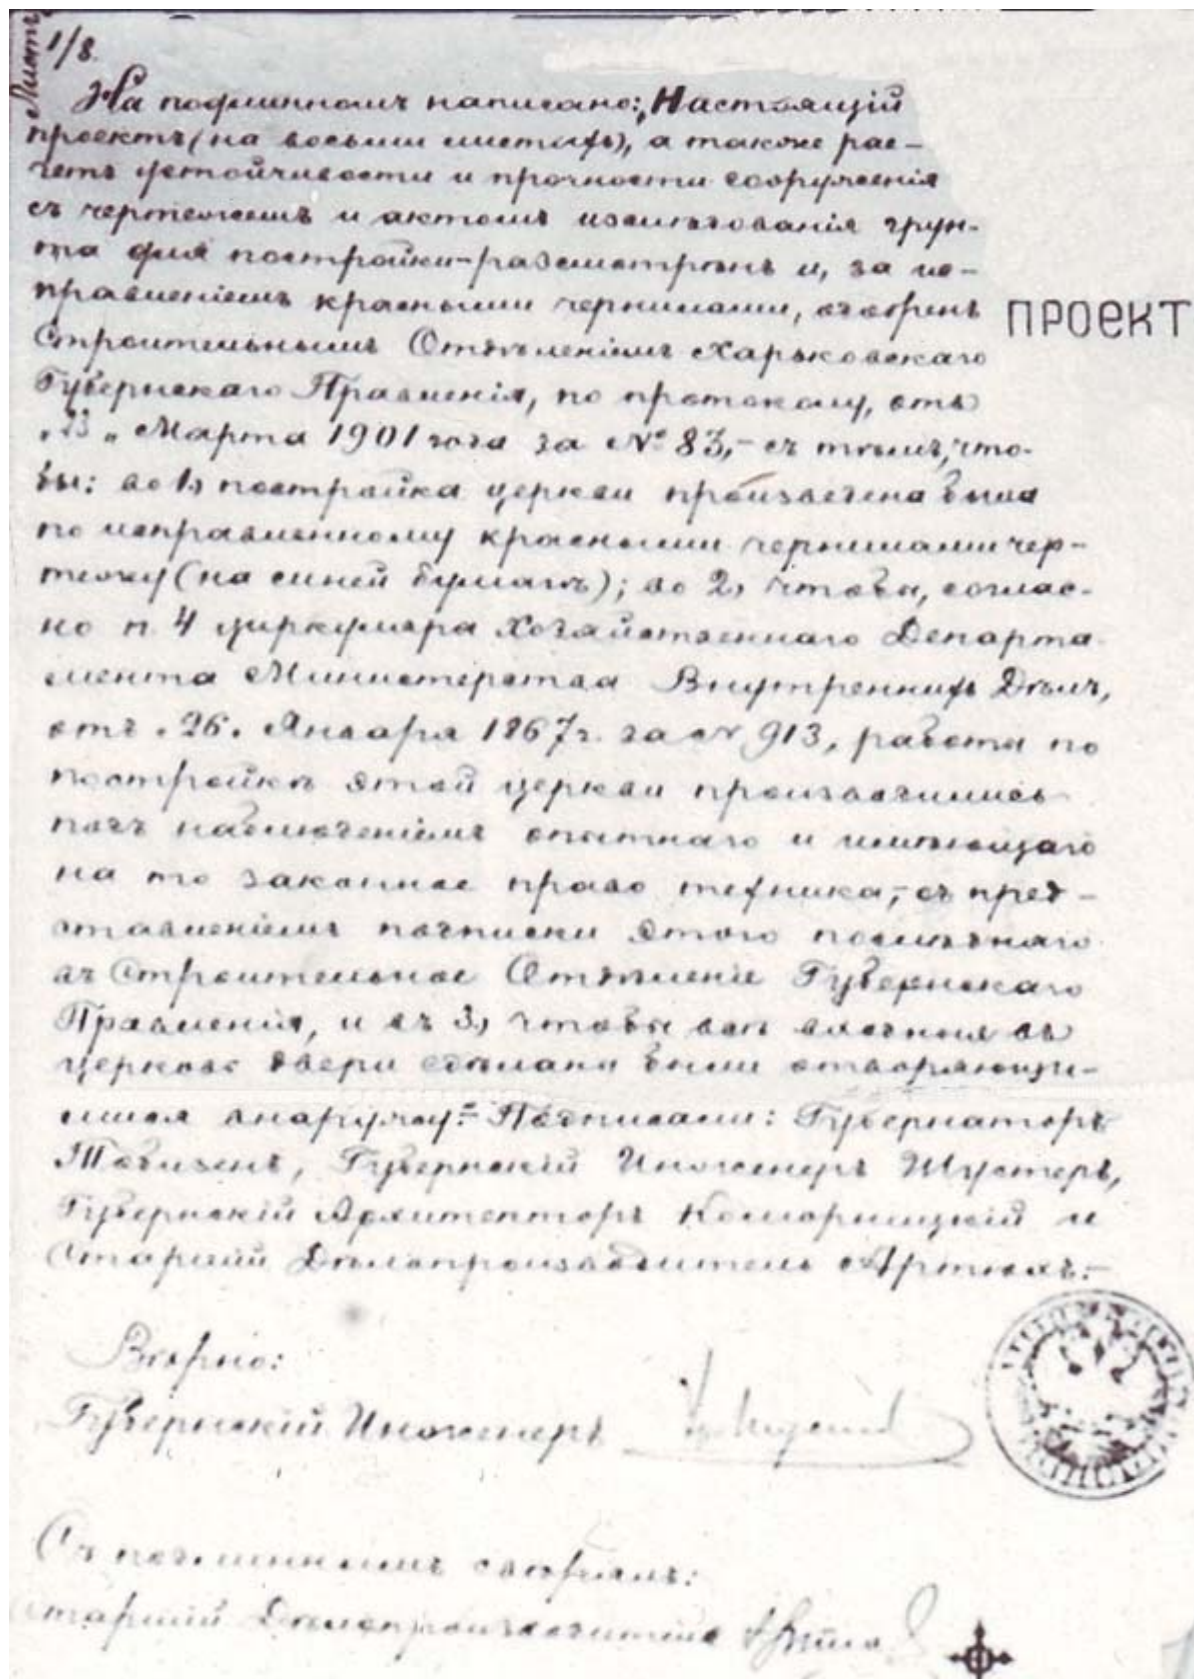 Листъ
1/8.
На подлинномъ написано: „Настоящій
проектъ (на восьми листахъ), а также рас-
четъ устойчивости и прочности сооруженія
съ чертежемъ и актомъ изслѣдованія грун-
та для постройки—разсмотрѣнъ и, за ис-
правленіемъ красными чернилами, одобренъ
ПРОЕКТ
Строительнымъ Отдѣленіемъ Харьковскаго
Губернскаго Правленія, по протоколу, отъ
„23„ Марта 1901 года за № 83,—съ тѣмъ, что-
бы: во 1, постройка церкви произведена была
по исправленному красными чернилами чер-
тежу (на синей бумагѣ); во 2, чтобы, соглас-
но п. 4 циркуляра Хозяйственнаго Департа-
мента Министерства Внутреннихъ Дѣлъ,
отъ „26„ Января 1867 г. за № 913, работы по
постройкѣ этой церкви производились
подъ наблюденіемъ опытнаго и имѣющаго
на то законное право техника,—съ пред-
ставленіемъ подписки этого послѣдняго
въ Строительное Отдѣленіе Губернскаго
Правленія, и въ 3, чтобы всѣ входныя въ
церковь двери сдѣланы были отворяющи-
мися внаружу.“ Подписали: Губернаторъ
Тобизенъ, Губернскій Инженеръ Шустеръ,
Губернскій Архитекторъ Комарницкій и
Старшій Дѣлопроизводитель Артюхъ.—
Вѣрно:
Губернскій Инженеръ
Съ подлиннымъ свѣрялъ:
старшій Дѣлопроизводитель